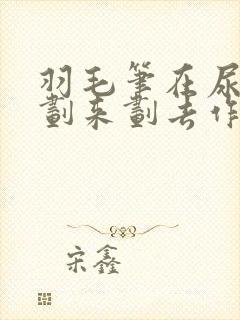 羽毛笔在尿
划来划去作
宋鑫